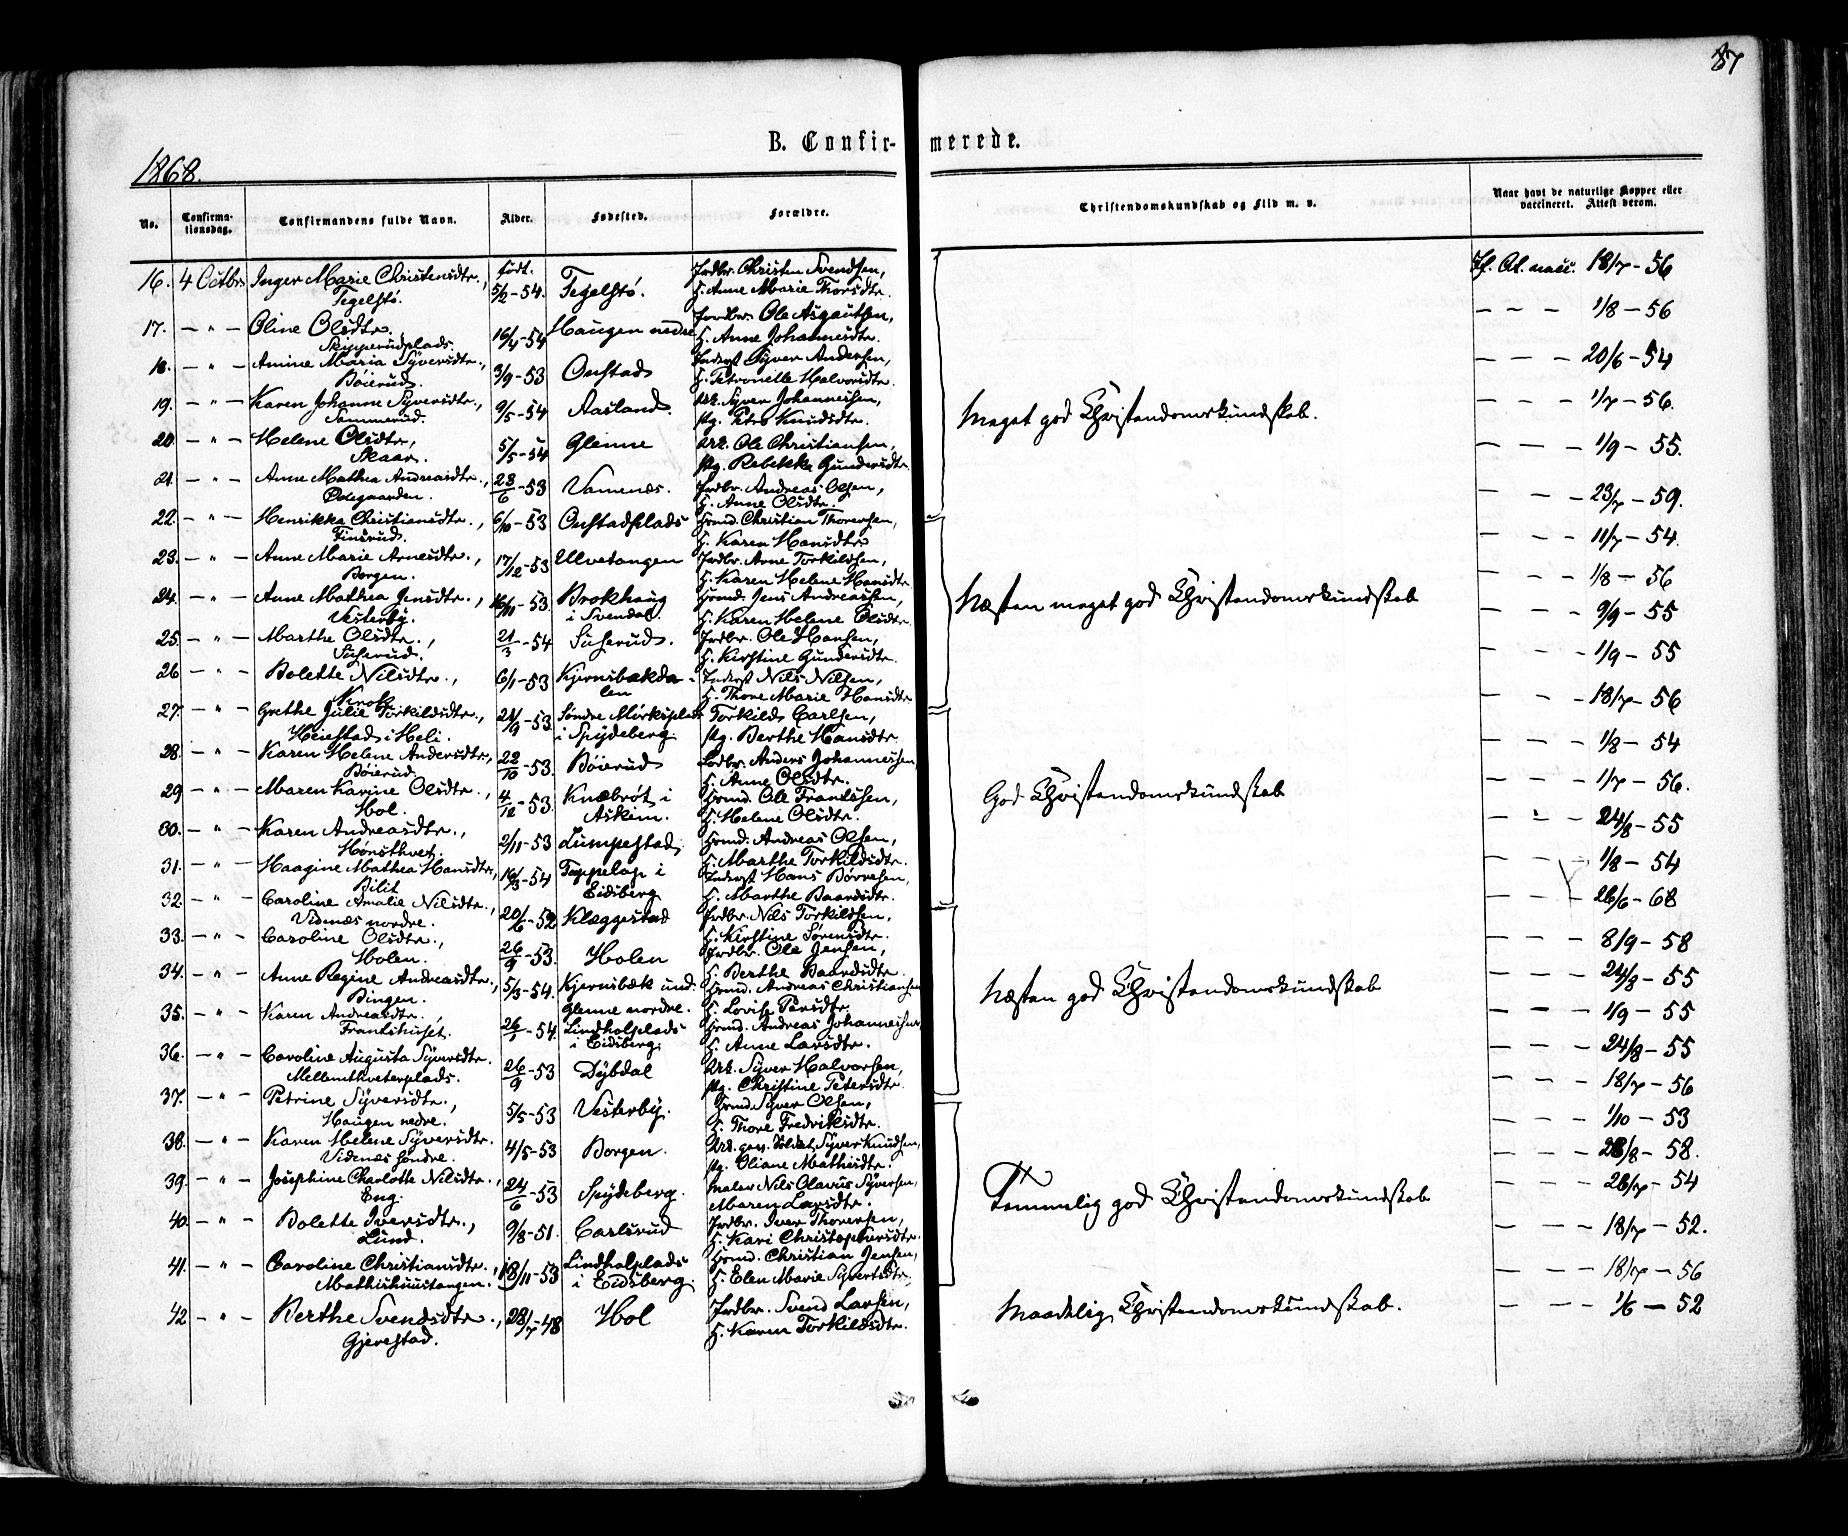 87
B. Confirmerede.
1868.
No. Confirmationsdag. Confirmandens fulde Navn. Alder. Fødested. Forældre. Christendomskundskab og Flid m. v. Naar havt de naturlige Kopper eller vaccineret. Attest derom.
16. 4 Octbr Inger Marie Christensdtr., født. 5/2-54. Tegelstø. Jrdbr. Christen Svendsen, 18/7-56
Tegelstø. H. Anne Marie Thorsdtr.
17. - " - Oline Olsdtr. 16/4-54 Haugen nedre Jordbr. Ole Asgautsen, - - - 1/8-56
Skipperudplads. H. Anne Johannesdtr.
18. - " - Amine Maria Syversdtr., 3/9-53 Onstad Inderst Syver Andersen, - - - 20/6-54
Bøierud. H. Petronelle Halvorsdtr.
19. - " - Karen Johanne Syversdtr., 9/5-54 Aasland. Ark. Syver Johannesen, Meget god Christendomskundskab. - - - 1/7-56.
Sammerud. Pig. Petra Knudsdtr.
20. - " - Helene Olsdtr., 5/5-54 Glenne Ark. Ole Christiansen, - - - 1/9-55.
Skaar. Pig. Rebekka Gundersdtr.
21. - " - Anne Mathea Andreasdtr., 23/6-53 Vamnæs. Jrdbr. Andreas Olsen, - - - 23/7-59.
Ødegaarden. H. Anne Olsdtr.
22. - " - Henrikka Christiansdtr., 6/10-53 Onstadplads Hrmd. Christian Thoresen, - - - 11/7-54
Finsrud. H. Karen Hansdtr.
23. - " - Anne Marie Arnesdtr., 17/12-53 Ulvetangen Jrdbr. Arne Torkildsen, - - - 1/8-56
Borgen. H. Karen Helene Hansdtr.
24. - " - Anne Mathea Jensdtr., 16/11-53 Brokhaug i Svendal. Hrmd. Jens Andreassen, Næsten meget god Christendomskundskab - - - 9/9-55
Vesterby. H. Karen Helene Olsdtr.
25. - " - Marthe Olsdtr., 21/3-54 Suserud. Jrdbr. Ole Hansen, - - - 1/9-55
Suserud. H. Kirstine Gundersdtr.
26 - " - Bolette Nilsdtr., 6/1-53 Kjernsbækdalen Inderst Nils Nilsen, - - - 18/7-56
Krok. H. Thore Marie Hansdtr.
27. - " - Grethe Julie Torkildsdtr., 24/9-53 Søndre Mørksplads i Spydeberg. Torkild Carlsen, - - - 1/8-54
Heiestad i Heli. Pig. Berthe Hansdtr.
28. - " - Karen Helene Andersdtr., 22/10-53. Bøierud Lodbr. Anders Johannessen, - - - 1/7-56.
Bøierud H. Anne Olsdtr.
29 - " - Maren Karine Olsdtr., 4/12-53. Knæbrøt i Askim. Hrmd. Ole Frantssen, God Christendomskundskab - " - 24/8-55
Hol. H. Helene Olsdtr.
30. - " - Karen Andreasdtr., 2/11-53 Lumpestad. Hrmd. Andreas Olsen, - - - 1/8-54
Hønsthvet. H. Marthe Torkildsdtr.
31. - " - Haagine Mathea Hansdtr., 16/3-54 Toppelop i Eidsberg Inderst Hans Børresen, - - - 26/6-68
Bilit H. Marthe Baardsdtr.
32 - " - Caroline Amalie Nilsdtr., 20/6-52 Klæggestad Jrdbr. Nils Torkildsen, - - - 8/9-58
Vidnæs nordre. H. Kirstine Sørensdtr.
33. - " - Caroline Olsdtr., 26/9-53. Holen Jrdbr. Ole Jensen, - - - 24/8-55
Holen. H. Berthe Baardsdtr.
34. - " - Anne Regine Andreasdtr., 5/3-54. Kjernsbæk und. Glenne nordre. Hrmd. Andreas Christiansen Næsten god Christendomskundskab - - - 1/9-55
Bingen. H. Lovise Persdtr.
35. - " - Karen Andreasdtr., Lindholplads i Eidsberg. Hrmd. Andreas Johannesen, - - - 24/8-55
Frantshuset. H. Anne Larsdtr.
36. - " - Caroline Augusta Syversdtr. 26/9-53 Dybdal Ark. Syver Halvorsen, - - - 18/7-56
Mellemthveterplads. Pig. Christine Petersdtr.
37. - " - Petrine Syversdtr., 5/5-53 Vesterby. Hrmd. Syver Olsen, - - - 1/10-53
Haugen nedre. H. Thore Fredriksdtr.
38. - " - Karen Helene Syversdtr. 4/5-53 Borgen. Ark. gev. Soldat Syver Knudsen, - - - 28/8-58.
Vidnæs søndre. Pig. Oliane Mathisdtr.
39. - " - Josephine Charlotte Nilsdtr., 24/6-53 Spydeberg. Maler Nils Olavus Syversen, Temmelig god Christendomskundskab - - - 26/7-54
Eng. Maren Larsdtr.
40. - " - Bolette Iversdtr., 9/8-51. Carlsrud Jrdbr. Iver Thoresen, - - - 18/7-52.
Lund. H. Kari Christophersdtr.
41. - " - Caroline Christiansdtr., 18/11-53 Lindholplads i Eidsberg. Hrmd. Christian Jensen, - - - 18/7-56
Mathishuustangen. H. Elen Marie Syvertsdtr.
42 - " - Berthe Svendsdtr., 28/7-48 Hol Jrdbr. Svend Larsen, Maadelig Christendomskundskab. - - - 1/6-52
Gjerestad. H. Karen Torkildsdtr.